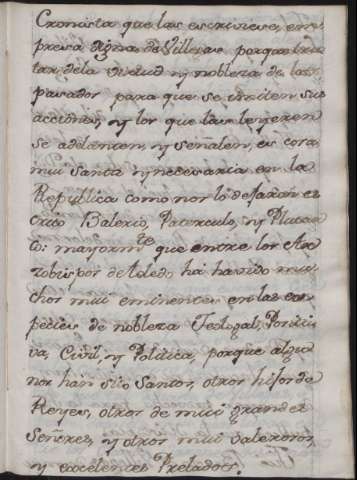 Cronista que las escriviese, em
presa digna de Villegas porque tra
tar dela virtud y nobleza de los
pasados para que se imiten sus
acciones, y los que las leyeren
se adelanten, y señalen, es cosa
mui santa y necesaria en la
Republica como nos lo dejaron es
crito Balerio, Paterculo, y Plutar
co: mayormte que entre los Ar
zobispos de toledo, há havido mu
chos mui eminentes en las es
pecies de nobleza Teologal, Positi
va, Civil, y Politica, porque algu
nos hán sido Santos, otros hijos de
Reyes, otros de mui grandes
Señores, y otros mui valerosos,
y excelentes Prelados.